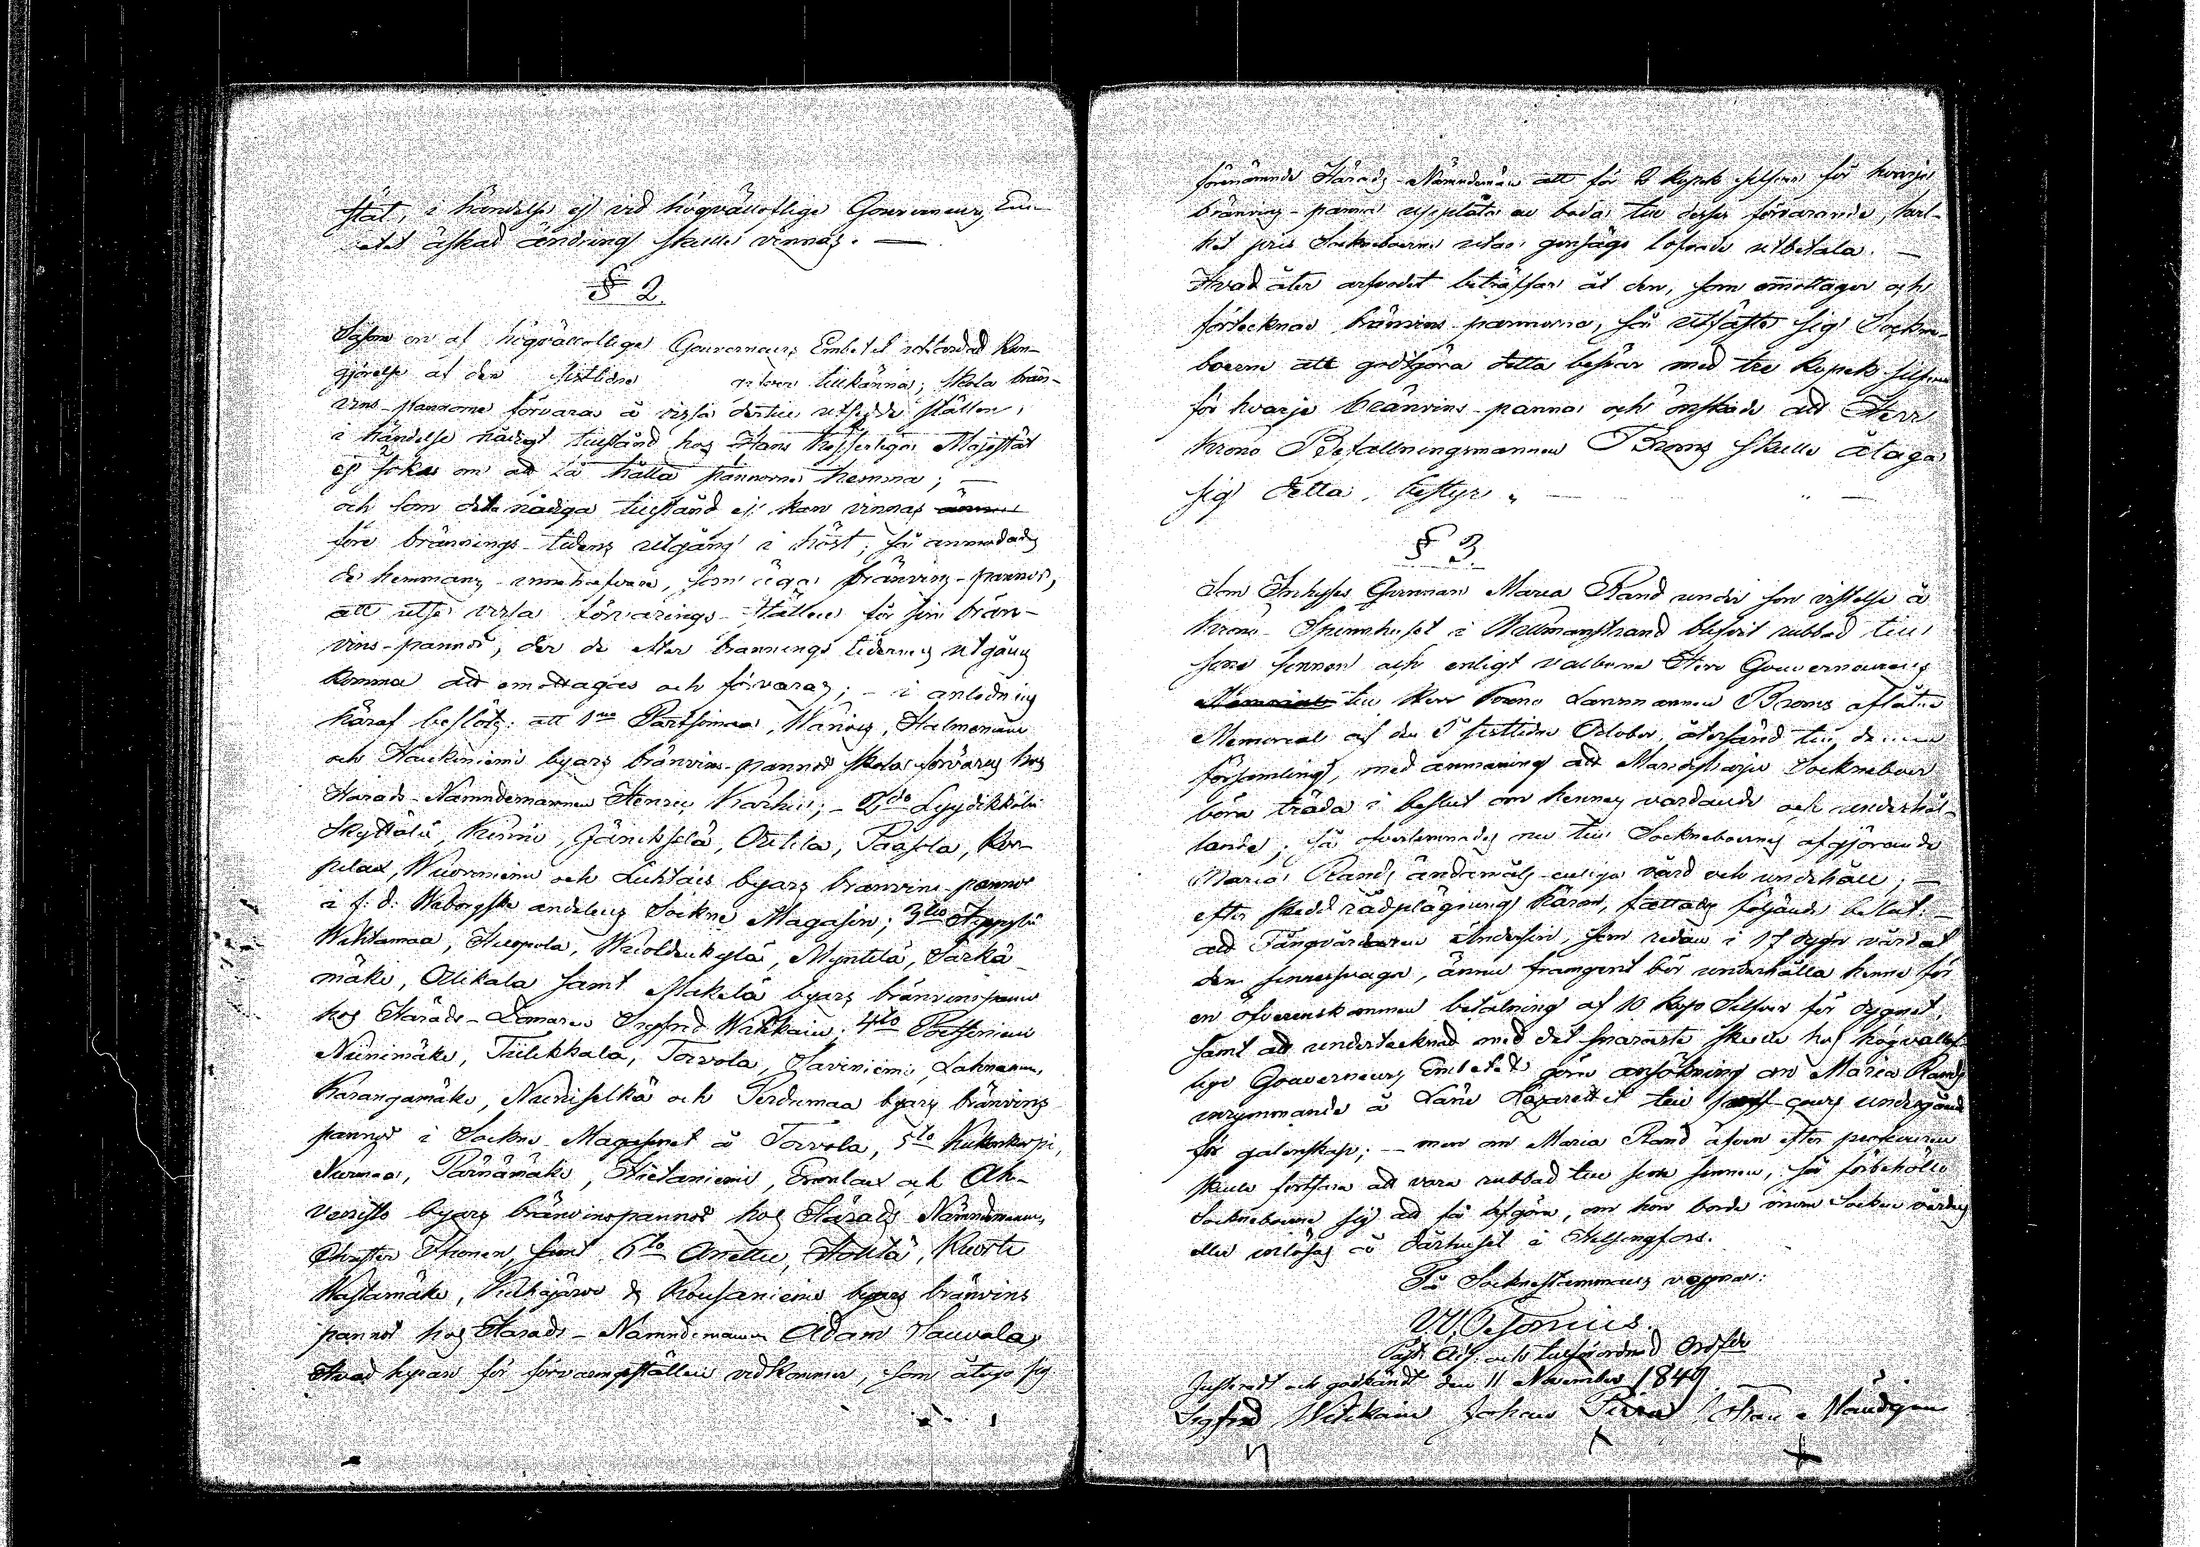 stät, i händelse ej vid högvällofliga Gouverneurs Em-
etet äskad ändring skulle vinnas. —
§ 2
Såsom en af högvällofliga Gouverneurs Embetet utfärdad Kun-
görelse af den sistlidne tillkänna; skola brän-
vins-pannorne förvaras å vissa dertill utsedde ställen,
i händelse nådigt tillstånd hos Hans Kejserliga Majestät
ej sökas om att få hålla pannorne hemma; —
och som detta nådiga tillstånd ej kan vinnas
före brännings-tidens utgång i höst; så anmodades
de hemmans-innehafvare, som äga bränvins-pannor,
att utse vissa förvarings-ställen för sine brän-
vins-pannor, der de efter brännings tidernes utgång
komma att emottagas och förvaras; – i anledning
häraf beslöts: att 1mo Partsimaa, Wainis, Salmenmäe
och Haukiniemi byars bränvins-pannor skola förvaras hos
Härads-Nämndemannen Henric Karhu; – 2do Lyydikkälä
Skyttälä, Kinni, Jänikselä, Ortela, Paasola, Kor-
pelax, Wuorniemi och Luhtais byars bränvins-pannor
i f: d: Wiborgska andelens Sockne Magasin; 3tio
Wihtamaa, Huopola, Woldenkylä, Myntelä, Särkä-
mäki, Ollikala samt Mäkelä byars bränvinspannor
hos Härads-Domaren Sigfred Wihkain: 4to
Niinimäki, Tiilikkala, Torvola, Saviniemi, Lahnaniemi,
Karangamäki, Niiniselkä och Perdumaa byars bränvins
pannor i Sockne Magasinet å Torvola, 5to
Nurmaa, Pärnämäki, Hietaniemi, Enonlax och Ah-
venisto byars bränvinspannor hos Härads Nämndeman,
Christer Ihonen, samt 6to Anttu, Hölttä, Kuorti
Wastamäki, Kiuasjärvi & Kousaniemi byars bränvins
pannor hos Härads-Nämndemannen Adam Hauvala,
Hvad hyran för förvaringsställen vidkommer, som åtogo sig
förenämnde Härads-Nämndemän att för 2 Kopek Silfver för hvarje
brännvins-panna upplåta en boda till desses förvarande, hvil-
ket pris Sockneboerne utan gensägo lofvade utbetala. —
Hvad åter arfvodet beträffar åt den, som emottager och
förtecknar bränvins-pannorna, så utfäste sig Sockne-
boerne att godtgöra detta besvär med tre Kopek Silfver
för hvarje bränvins-panna och önskade att Herr
Krono Befallningsmannen Broms skulle åtaga
sig detta bestyr „ —
§ 3
Som Inhyses Quinnan Maria Rand under sin vistelse å
Krono-Spinnhuset i Willmanstrand blifvit rubbad till
sina sinnen och enligt välborne Herr Gouverneurens
till Herr Krono Länsmannen Broms aflåtne
Memorial af den 5 sistlidne October, återsänd till denna
församling, med anmaning att Mändyharju Sockneboer
böra träda i beslut om hennes vårdande och underhål-
lande; så öfverlemnades nu till Sockneboernes afgörande
Maria Rands ändamåls-enliga vård och underhåll; —
efter skedd rådplägning häröm, fattades följande beslut: —
att Fångvårdaren Andersin, som redan i 17 dygn vårdat
den sinnessvaga, ännu framgent bör underhålla henne för
en öfverenskommen betalning af 10 Kop Silfver för dygnet,
samt att undertecknad med det snaraste skulle hos högvällof-
liga Gouverneurs Embetet göra ansökning om Maria Rands
inrymmande å Läne Lazarettet till cours undergående
för galenskap; — men om Maria Rand äfven efter prokuren
skulle fortfara att vara rubbad till sine sinnen, så förbehöllo
Sockneboerne sig att få afgöra, om hon borde inom Socknen vårdas
eller inlösas å Dårhuset i Helsingfors.
På Sockneståmmans vägnar:
W. Pesonius.
Past. Adj. och tillförordnad Ordför
Justeradt och godkändt den 11 November 1849.
Sigfred Wihkain Johan Pirra Johan Mändynen